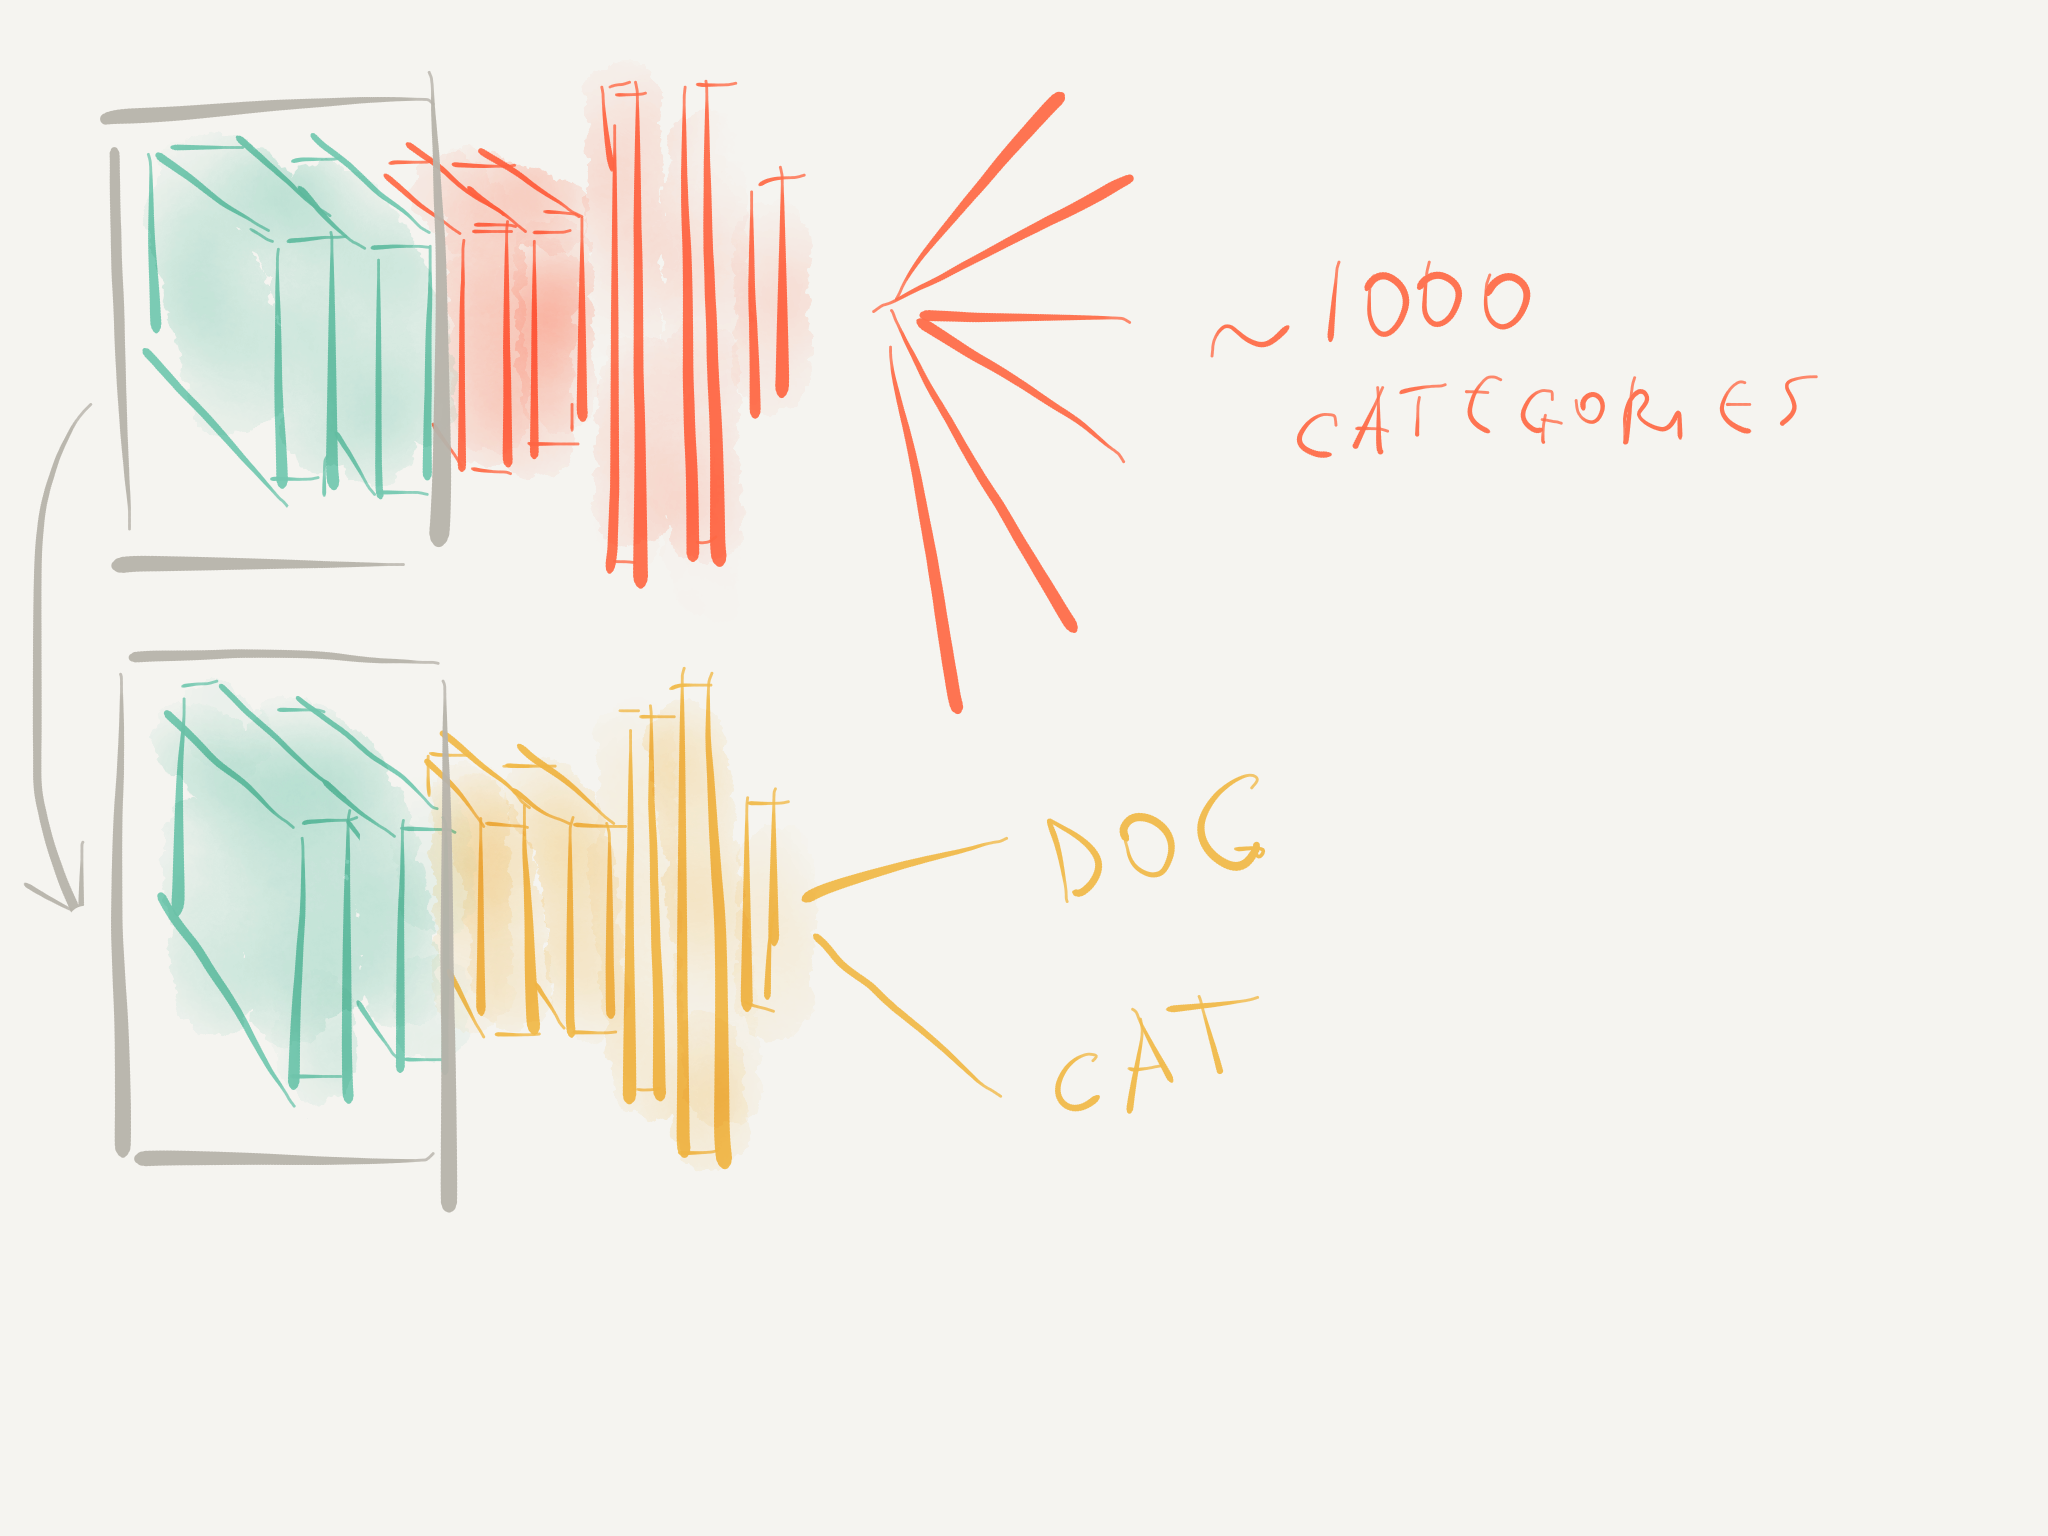 ~ 1000
CATEGORIES
DOG
CAT